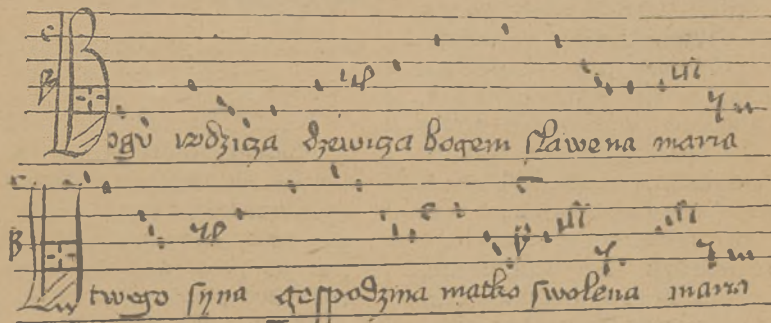 Bogu rodzicza dzewicza bogem slawena maria
U twego syna gospodzina matko swolena maria